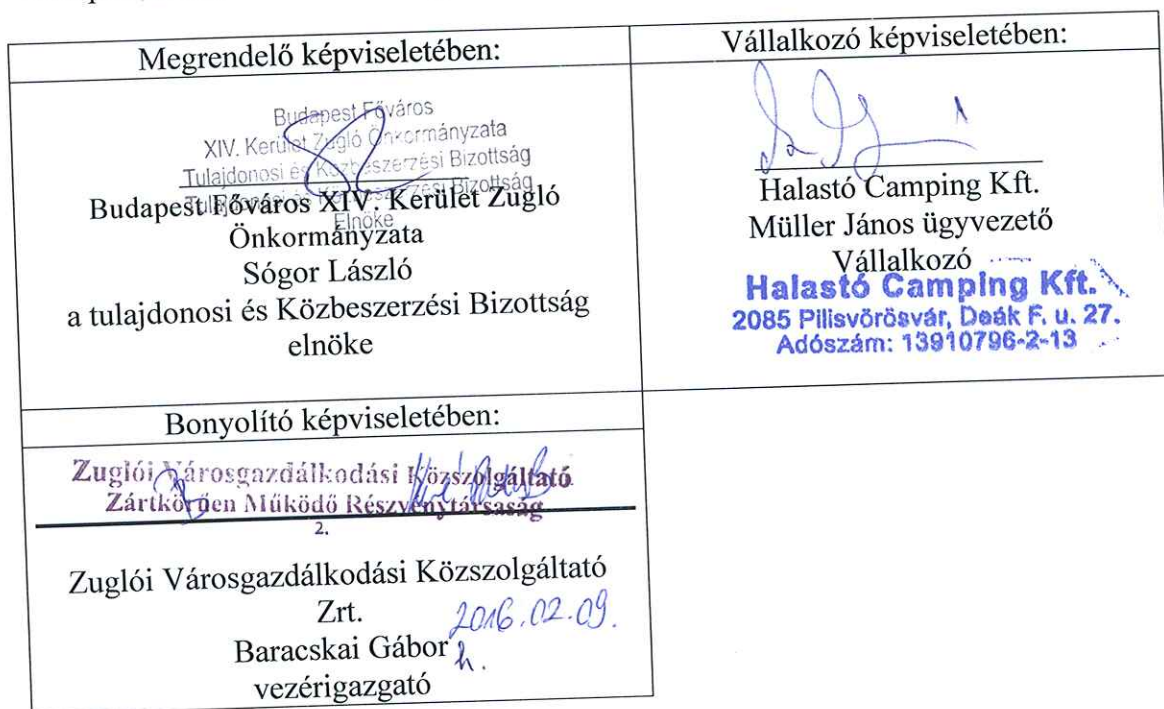 Megrendelő képviseletében:
Budapest Főváros
XIV. Kerület Zugló Önkormányzata
Tulajdonosi és Közbeszerzési Bizottság
Tulajdonosi és Közbeszerzési Bizottság
Elnöke
Budapest Főváros XIV. Kerület Zugló
Önkormányzata
Sógor László
a tulajdonosi és Közbeszerzési Bizottság
elnöke
Vállalkozó képviseletében:
Halastó Camping Kft.
Müller János ügyvezető
Vállalkozó
Halastó Camping Kft.
2085 Pilisvörösvár, Deák F. u. 27.
Adószám: 13910796-2-13
Bonyolító képviseletében:
Zuglói Városgazdálkodási Közszolgáltató
Zártkörűen Működő Részvénytársaság
2.
Zuglói Városgazdálkodási Közszolgáltató
Zrt.
2016.02.09.
Baracskai Gábor
h.
vezérigazgató